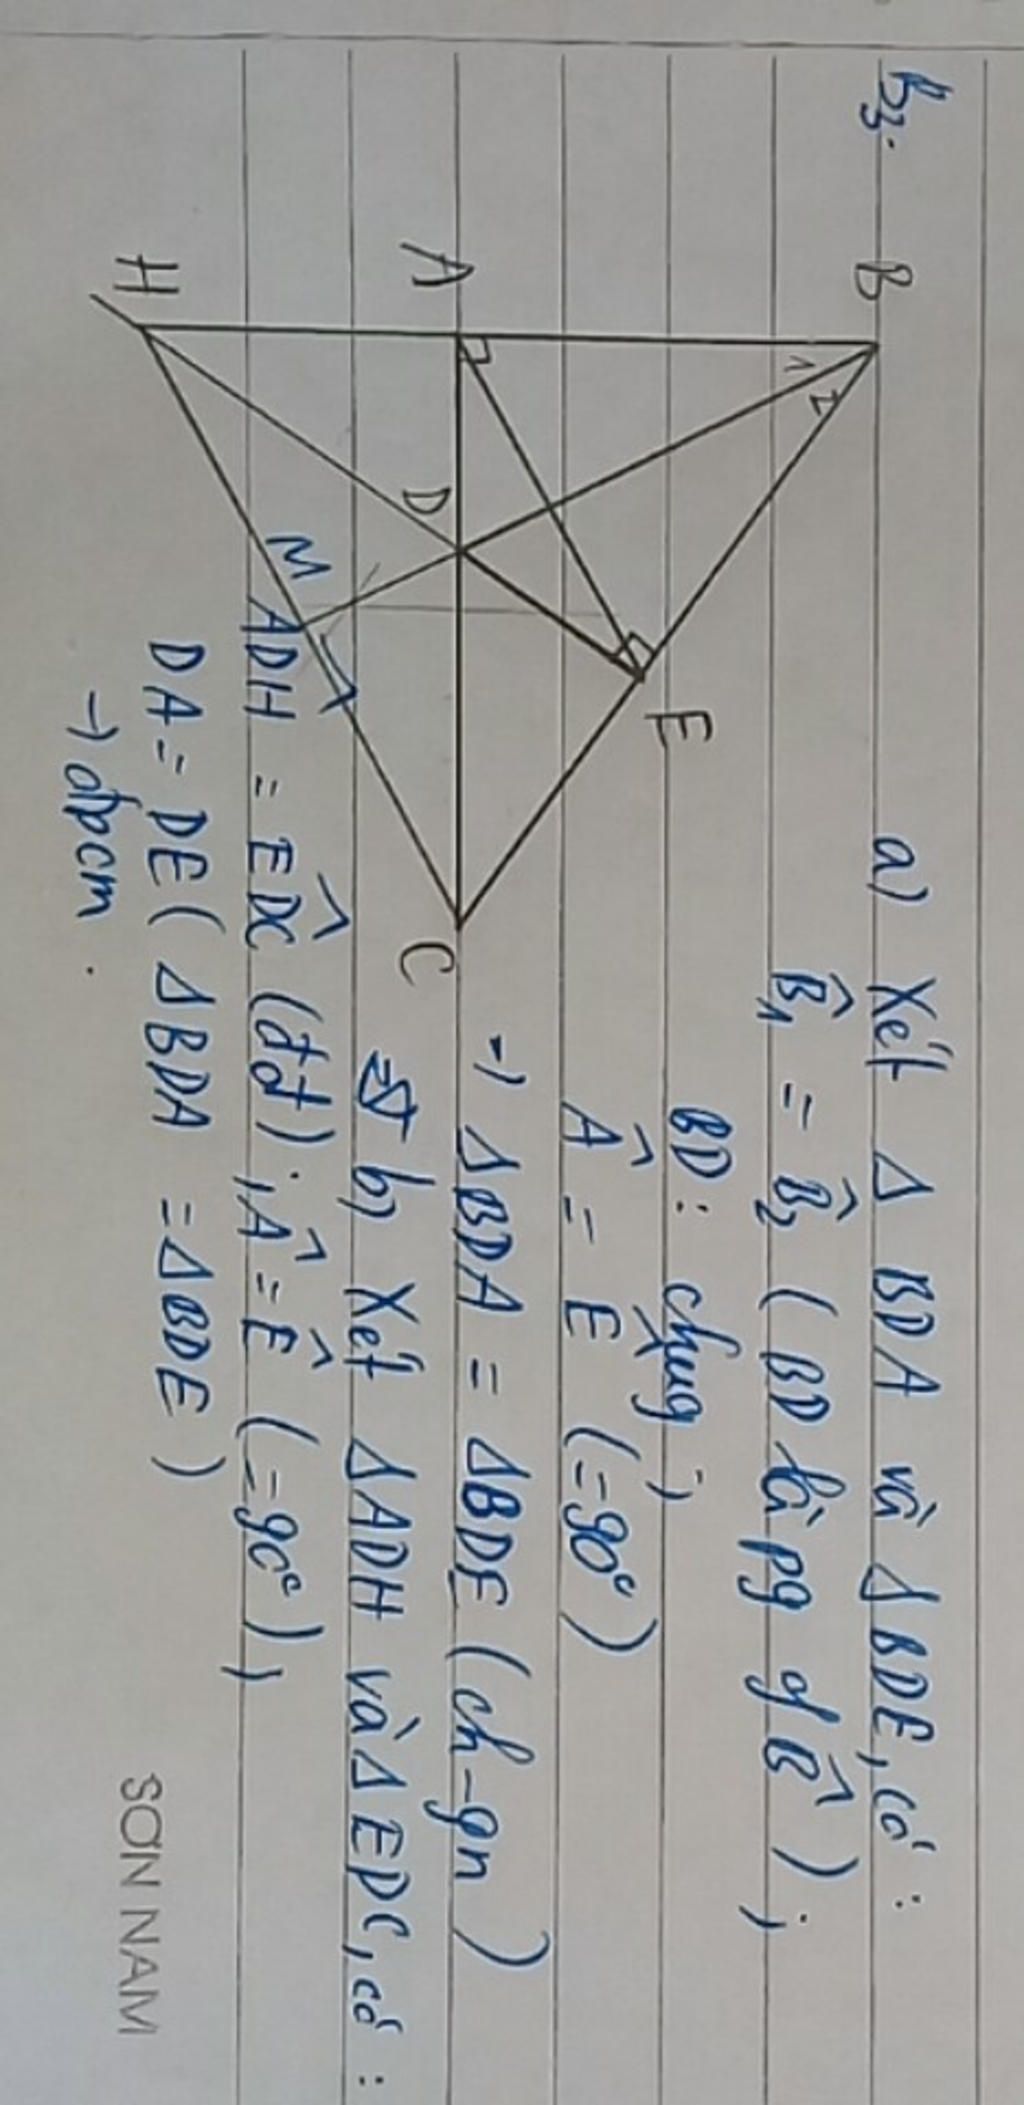 B3.
B
1
2
A
H
D
M
E
C
a) Xét Δ BDA và Δ BDE, có:
B̂₁ = B̂₂ ( BD là pg of B̂ ) ;
BD: chung ;
Â = Ê (=90°)
→ ΔBDA = ΔBDE ( ch-gn )
b) Xét ΔADH và Δ EDC, có :
ADH = EDĈ (đđ) ; Â = Ê (=90°) ;
DA = DE ( ΔBDA = ΔBDE )
→ đpcm .
SƠN NAM